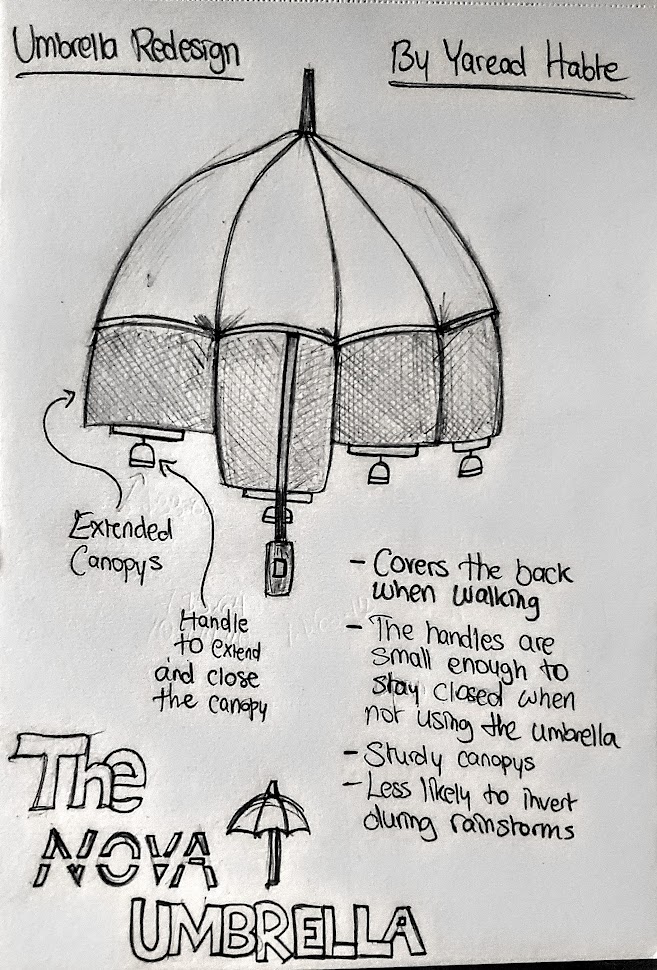 Umbrella Redesign
By Yaread Habte
Extended
Canopys
Handle
to extend
and close
the canopy
- Covers the back
when walking
- The handles are
small enough to
stay closed when
not using the umbrella
- Sturdy canopys
- Less likely to invert
during rainstorms
The
NOVA
UMBRELLA